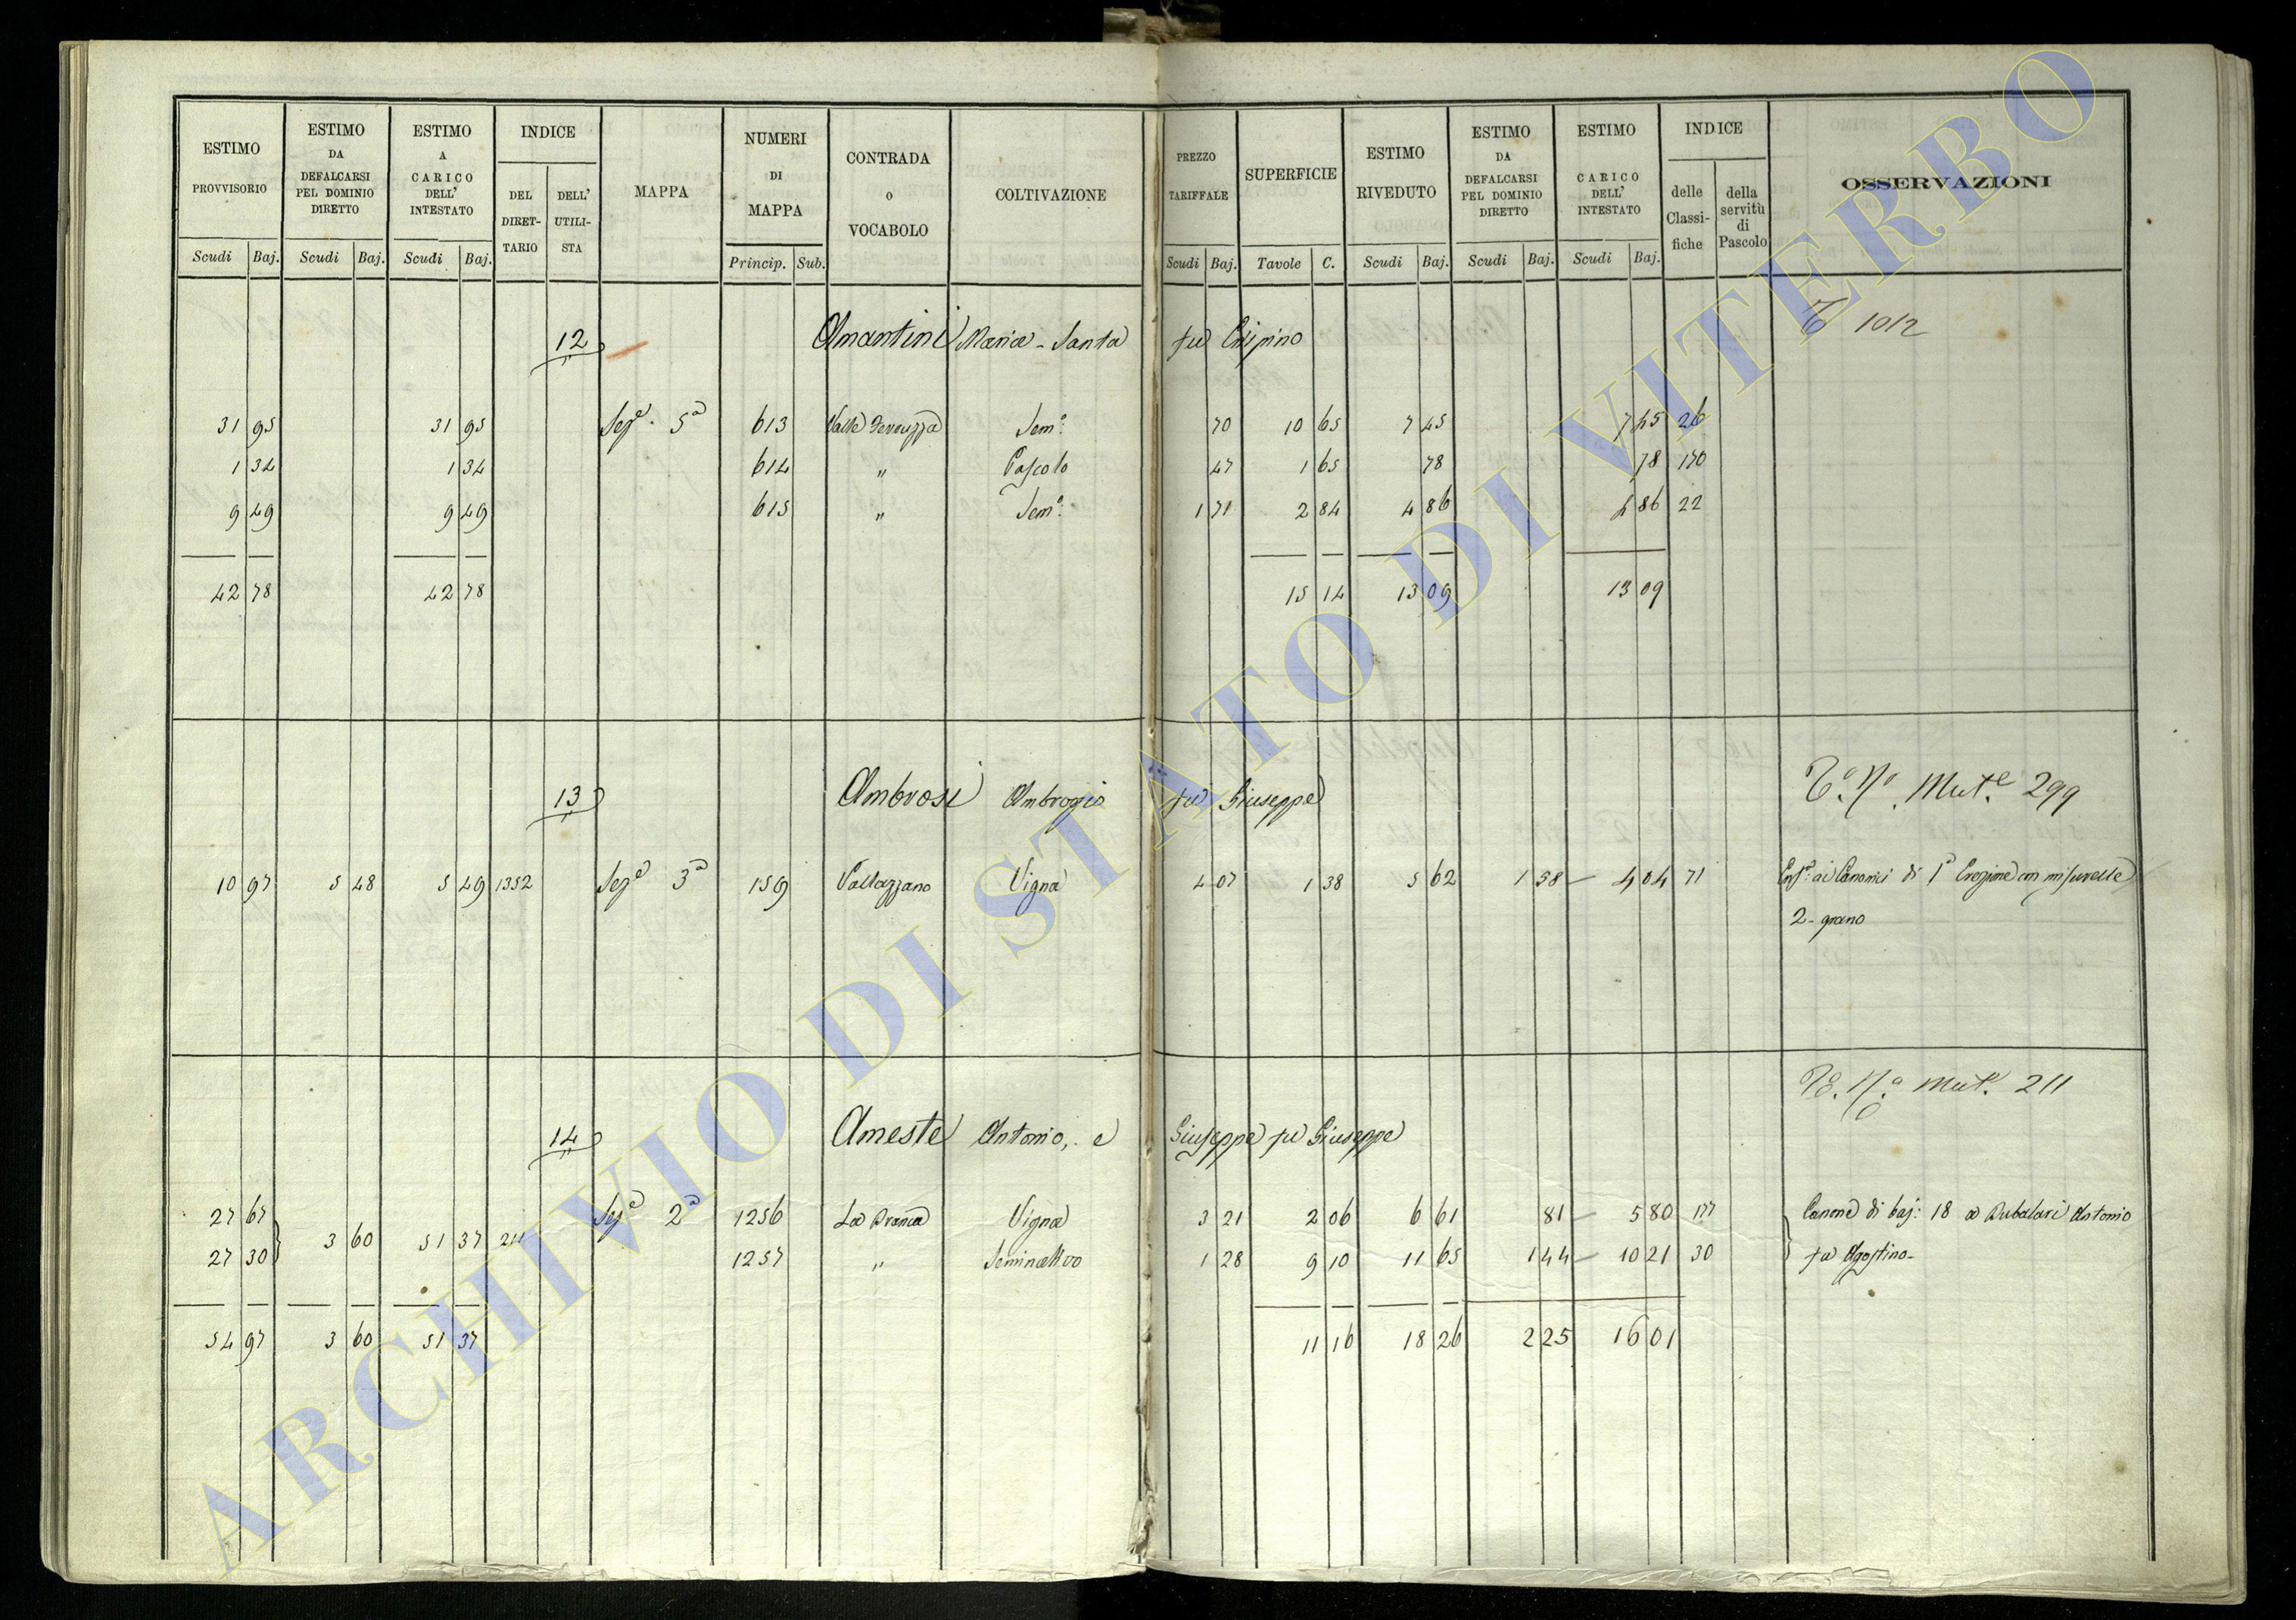 ESTIMO PROVVISORIO | ESTIMO DA DEFALCARSI PEL DOMINIO DIRETTO | ESTIMO A CARICO DELL' INTESTATO | INDICE | MAPPA | NUMERI DI MAPPA | CONTRADA o VOCABOLO | COLTIVAZIONE | PREZZO TARIFFALE | SUPERFICIE | ESTIMO RIVEDUTO | ESTIMO DA DEFALCARSI PEL DOMINIO DIRETTO | ESTIMO A CARICO DELL' INTESTATO | INDICE | OSSERVAZIONI
DEL DIRETTARIO | DELL' UTILISTA | delle Classifiche | della servitù di Pascolo
Scudi | Baj. | Scudi | Baj. | Scudi | Baj. | Princip. | Sub. | Scudi | Baj. | Tavole | C. | Scudi | Baj. | Scudi | Baj. | Scudi | Baj.
12 Amantini Maria - Santa fu Crispino 1012
31 95 | 31 95 | Sezе 5a | 613 | Valle | Sem: | 70 | 10 65 | 7 45 | 7 45 | 26
1 34 | 1 34 | 614 | " | Pascolo | 47 | 1 65 | 78 | 78 | 170
9 49 | 9 49 | 615 | " | Sem: | 1 71 | 2 84 | 4 86 | 4 86 | 22
42 78 | 42 78 | 15 14 | 13 09 | 13 09
13 Ambrosi Ambrogio fu Giuseppe Mut.e 299
10 97 | 5 48 | 5 49 | 1352 | Seze 3a | 159 | Vallazzano | Vigna | 4 07 | 1 38 | 5 62 | 1 58 | 4 04 | 71 | ai Canonici di con misurelle
2 - grano
Mut. 211
14 Ameste Antonio, e Giuseppe fu Giuseppe
27 67 | 3 60 | 51 37 | 211 | Seze 2a | 1256 | La | Vigna | 3 21 | 2 06 | 6 61 | 81 | 5 80 | 177 | Canone di baj: 18 a Antonio
27 30 | 1257 | " | Seminativo | 1 28 | 9 10 | 11 65 | 1 44 | 10 21 | 30 | fu Agostino -
54 97 | 3 60 | 51 37 | 11 16 | 18 26 | 2 25 | 16 01
ARCHIVIO DI STATO DI VITERBO